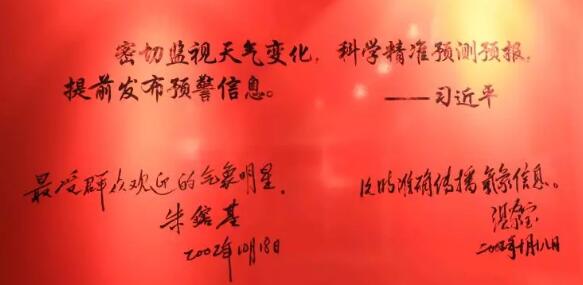 密切监视天气变化，科学精准预测预报，
提前发布预警信息。
——习近平
最受群众欢迎的气象明星。
朱镕基
2002年10月18日
及时准确传播气象信息。
温家宝